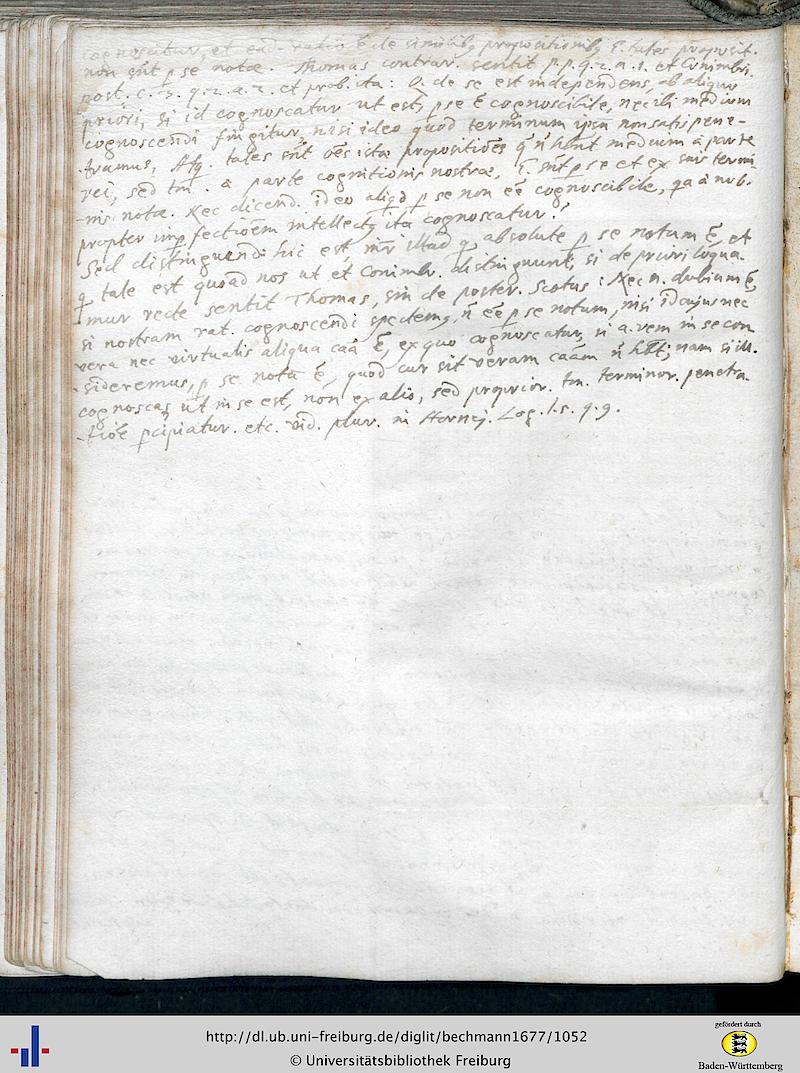 cognoscitur, et ead. ratio ẽ de similibq propositionibq E. tales proposit.
non sñt p se notæ. Thomas contrar. sentit p. p. q. 2. a. 1. et Conimbri.
post. c. 3. q. 2. a. 2. et prob. ita: Q. de se est independens, ab aliquo
priori, si id cognoscatur ut est, p se ẽ cognoscibile, nec ili medium
cognoscendi fingitur, nisi ideo quod terminum ipsũ non satis pene-
tramus, Atq. tales sñt oẽs istæ propositiões q ñ hñt medium a parte
rei, sed tm̃. a parte cognitionis nostræ, E. sñt p se et ex suis termi
nis notæ. Nec dicend. ideo aliqd p se non eẽ cognoscibile, qa a nob.
propter imp fectioẽm intellectq ita cognoscatur.
Sed distinguendũ hic est, inr̃ illud q absolute p se notum ẽ, et
q tale est quoad nos ut et Conimbr. distinguunt, si de priori loqua-
mur recte sentit Thomas, sin de poster. Scotus: Nec n. dubium ẽ,
si nostram rat. cognoscendi spectemq, ñ eẽ p se notum, nisi id cujus nec
vera nec virtualis aliqua caã ẽ, ex quo cognoscatur, si a. rem in se con
sideremus, p se notũ ẽ, quod cur sit veram caãm ñ hẽt; nam si ill.
cognoscas ut in se est, non ex alio, sed proprior. tm. terminor. penetra-
tioẽ pcipiatur. etc. vid. plur. in Hornej. Log. l. 5. q. 9.
http://dl.ub.uni-freiburg.de/diglit/bechmann1677/1052
© Universitätsbibliothek Freiburg
gefördert durch
Baden-Württemberg